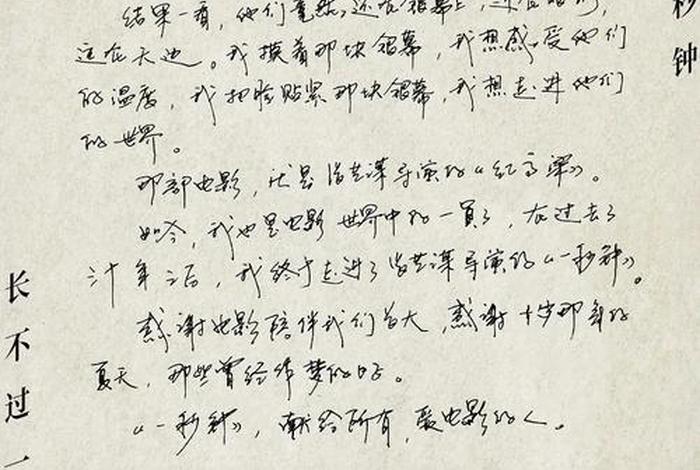 结果一看，他们竟然还在银幕上，
远在天边。我摸着那块银幕，我想感受他们
的温度，我把脸贴紧那块银幕，我想走进他们
的世界。
那部电影，就是张艺谋导演的《红高粱》。
如今，我也是电影世界中的一员了，在过去了
三十年之后，我终于走进了张艺谋导演的《一秒钟》。
感谢电影陪伴我们长大，感谢十岁那年的
夏天，那些曾经作梦的时。
《一秒钟》，献给所有，爱电影的人。
秒钟
长不过一